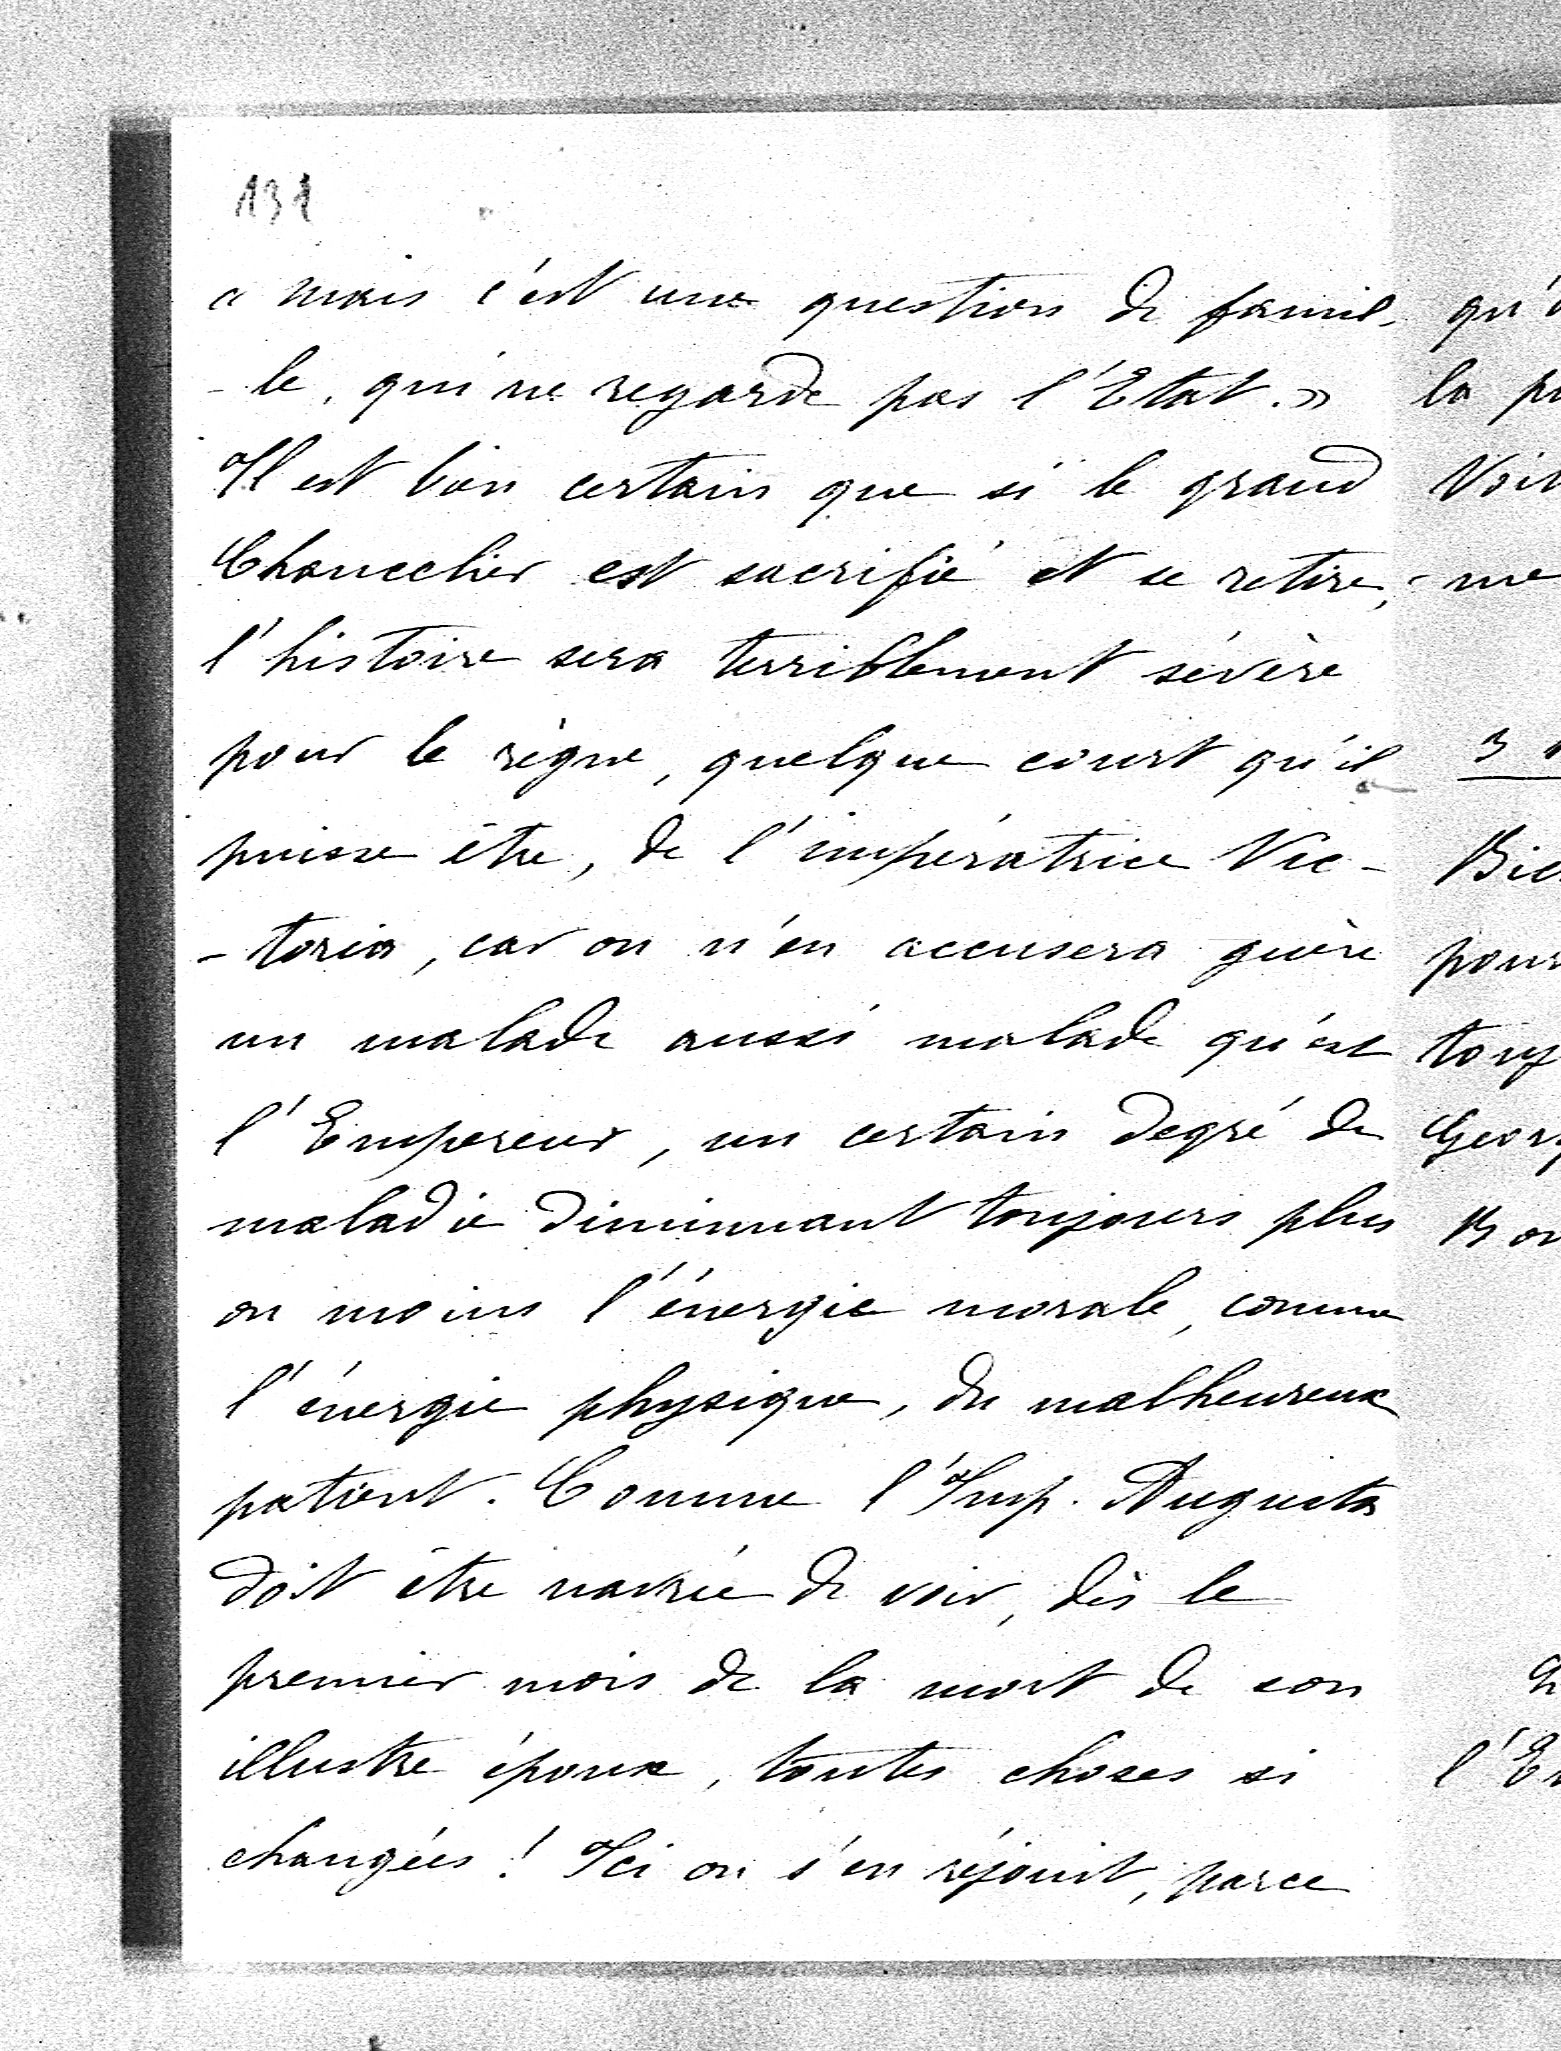 131
« mais c'est une question de famil-
-le, qui ne regarde pas l'Etat. »
Il est bien certain que si le grand
Chancelier est sacrifié et se retire,
l'histoire sera terriblement sévère
pour le règne, quelque court qu'il
puisse être, de l'impératrice Vic-
-toria, car on n'en accusera guère
un malade aussi malade qu'est
l'Empereur, un certain degré de
maladie diminuant toujours plus
ou moins l'énergie morale, comme
l'énergie physique, du malheureux
patient. Comme l'Imp. Augusta
doit être navrée de voir, dès le
premier mois de la mort de son
illustre époux, toutes choses si
changées ! Ici on s'en réjouit, parce
la
Voir
-me
3
pour
l'E